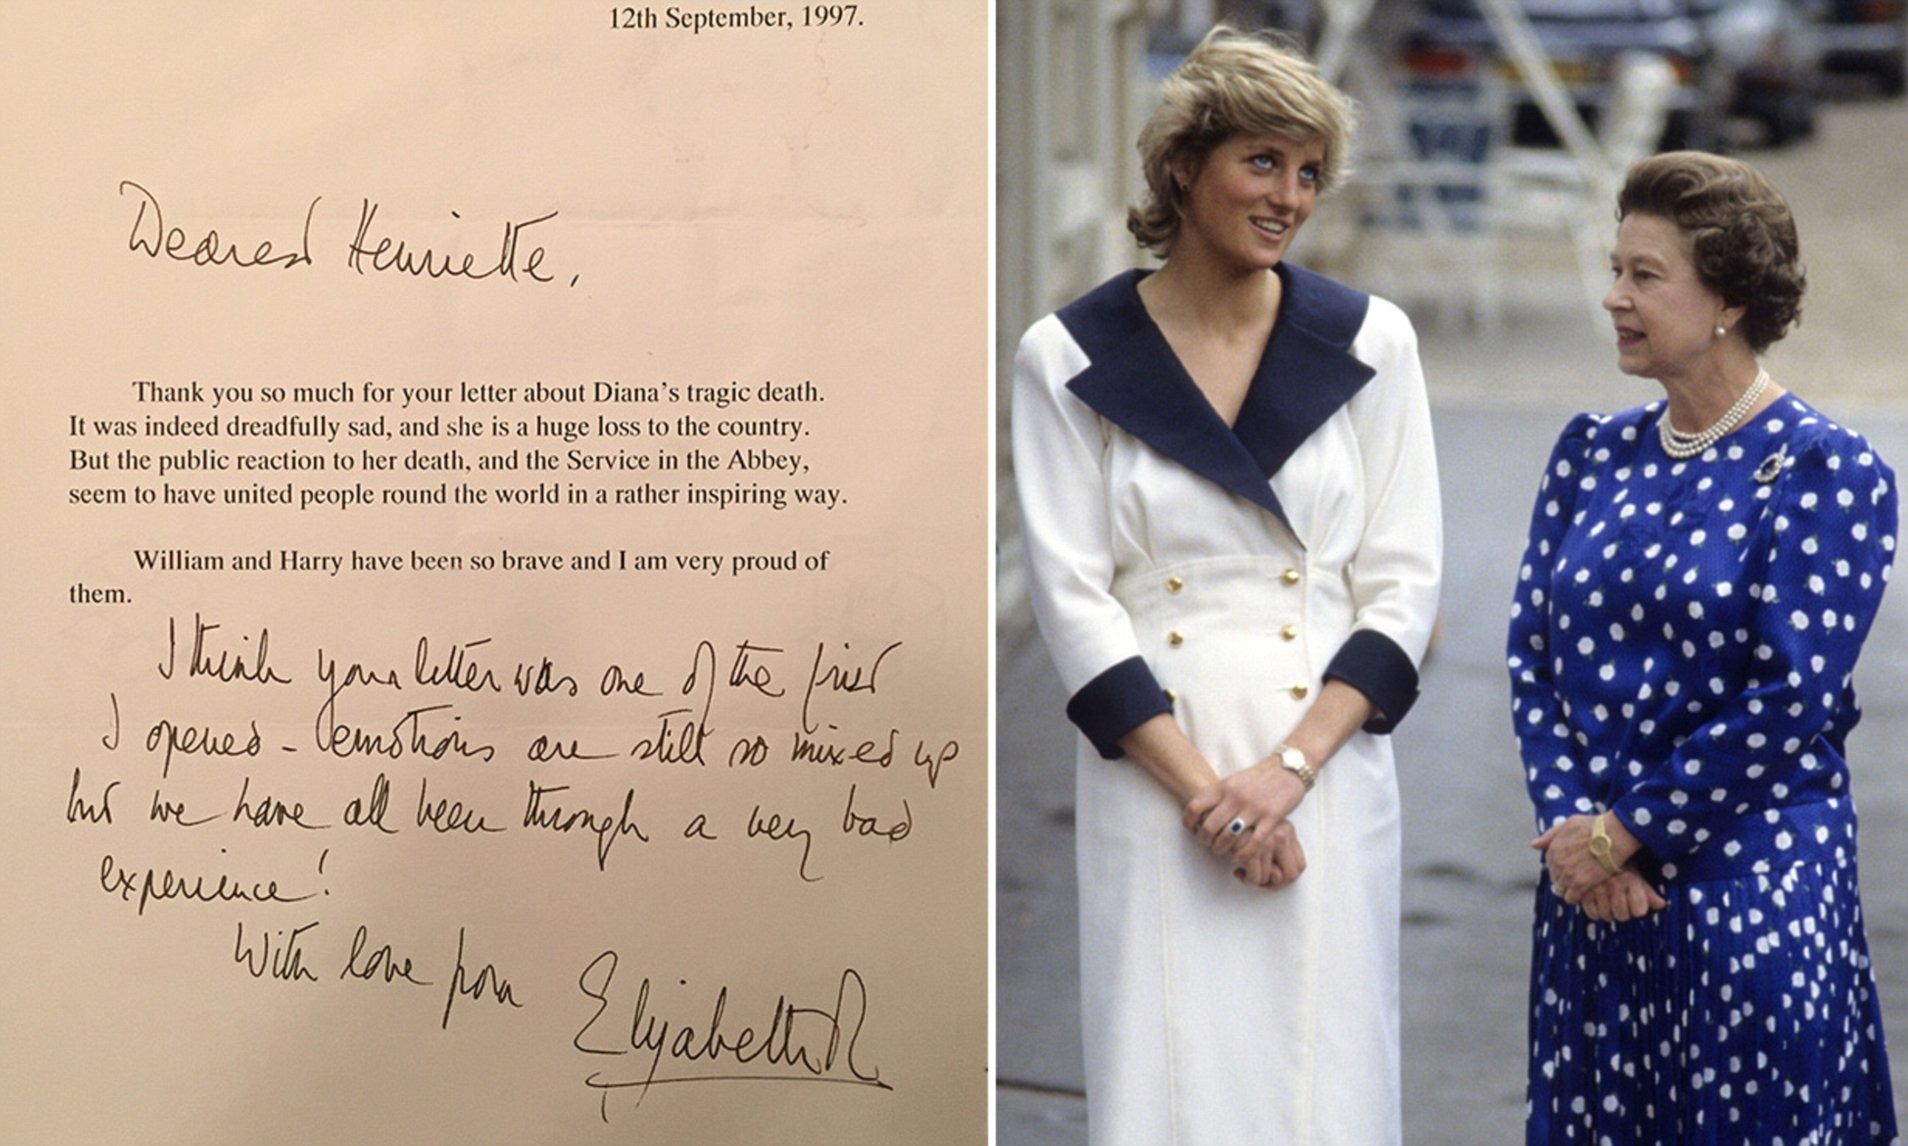 12th September, 1997.
Dearest Henriette,
Thank you so much for your letter about Diana's tragic death.
It was indeed dreadfully sad, and she is a huge loss to the country.
But the public reaction to her death, and the Service in the Abbey,
seem to have united people round the world in a rather inspiring way.
William and Harry have been so brave and I am very proud of
them.
I think your letter was one of the first
I opened - emotions are still so mixed up
but we have all been through a very bad
experience!
With love from
Elizabeth R